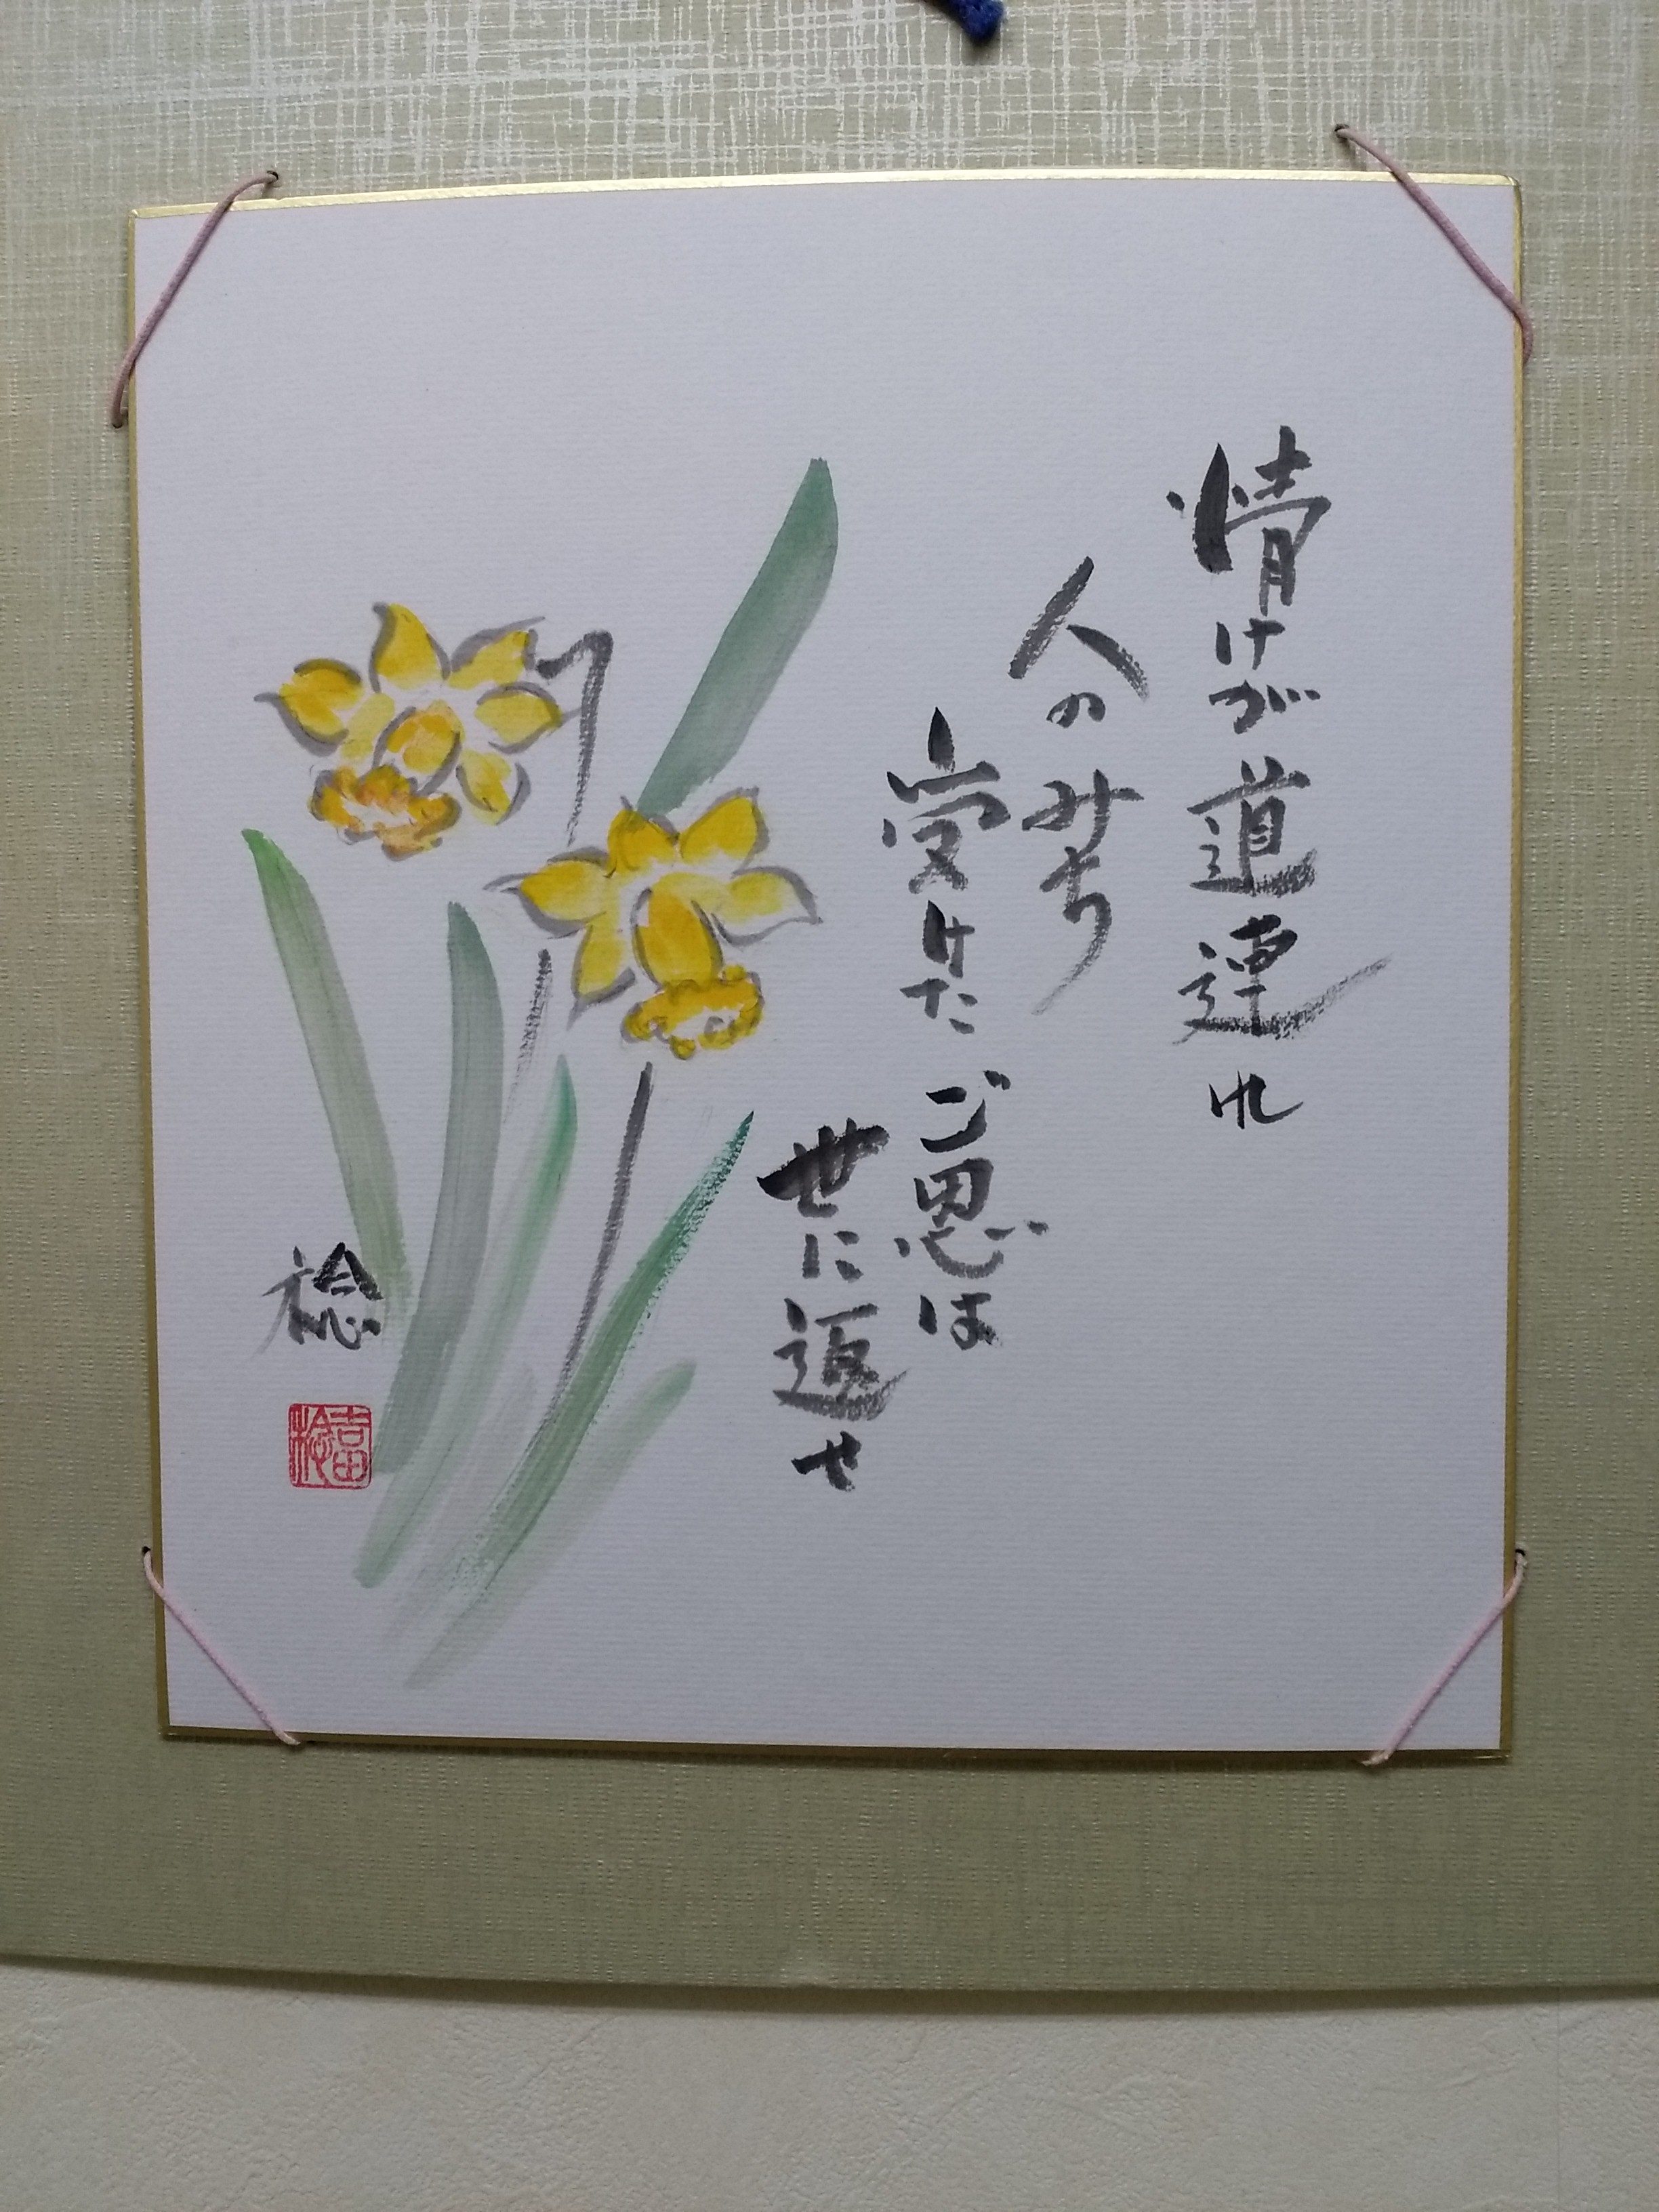 情けが道連れ
人のみち
受けたご恩は
世に返せ
稔
吉田
稔